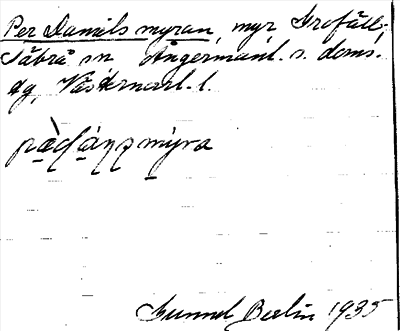 Per Daniels myran, myr Grofäll,
Säbrå sn Ångermanl. s. doms.
ag, Västernorrl. l.
myra
Gunnel Berlin 1935